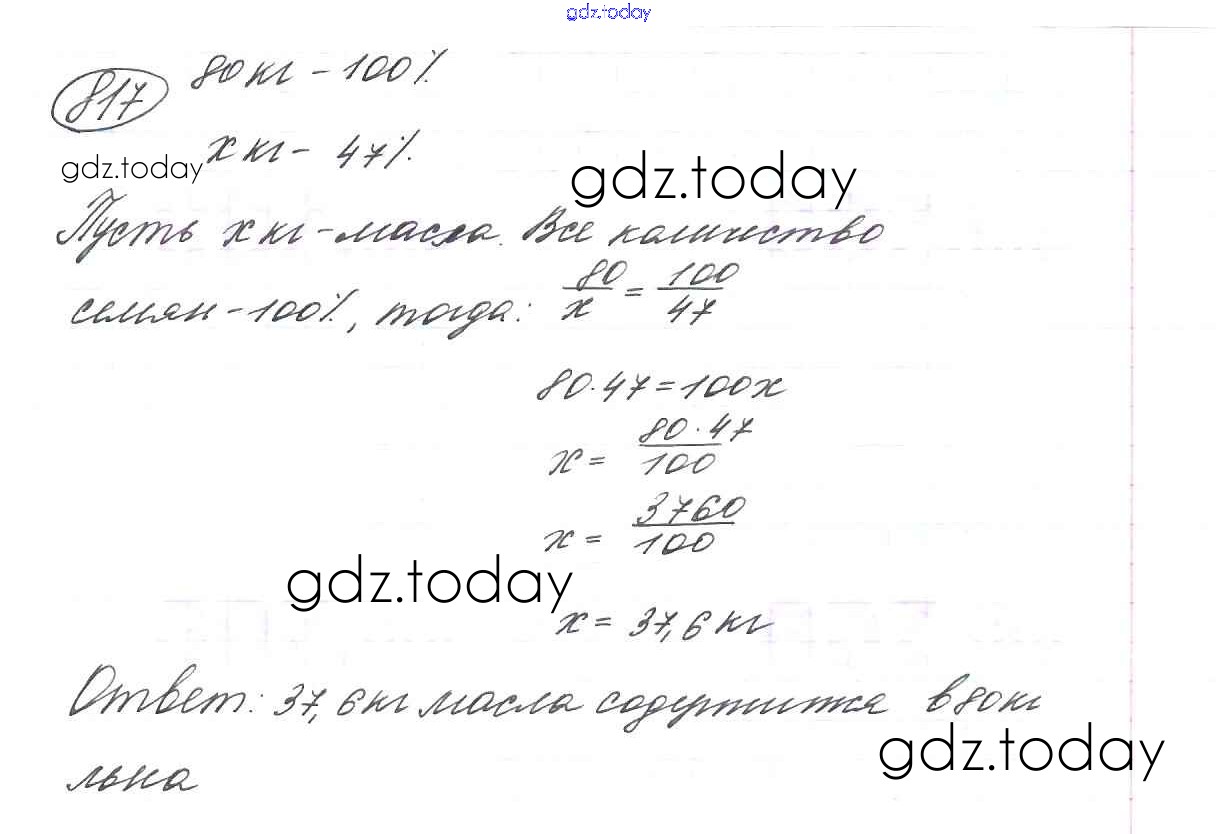 gdz.today
817 80 кг – 100%
x кг – 47%.
gdz.today
gdz.today
Пусть x кг – масла. Все количество
семян – 100%, тогда: 80/x = 100/47
80·47=100x
x = 80·47/100
x = 3760/100
gdz.today
x = 37,6 кг
Ответ: 37,6 кг масла содержится в 80 кг
gdz.today
льна